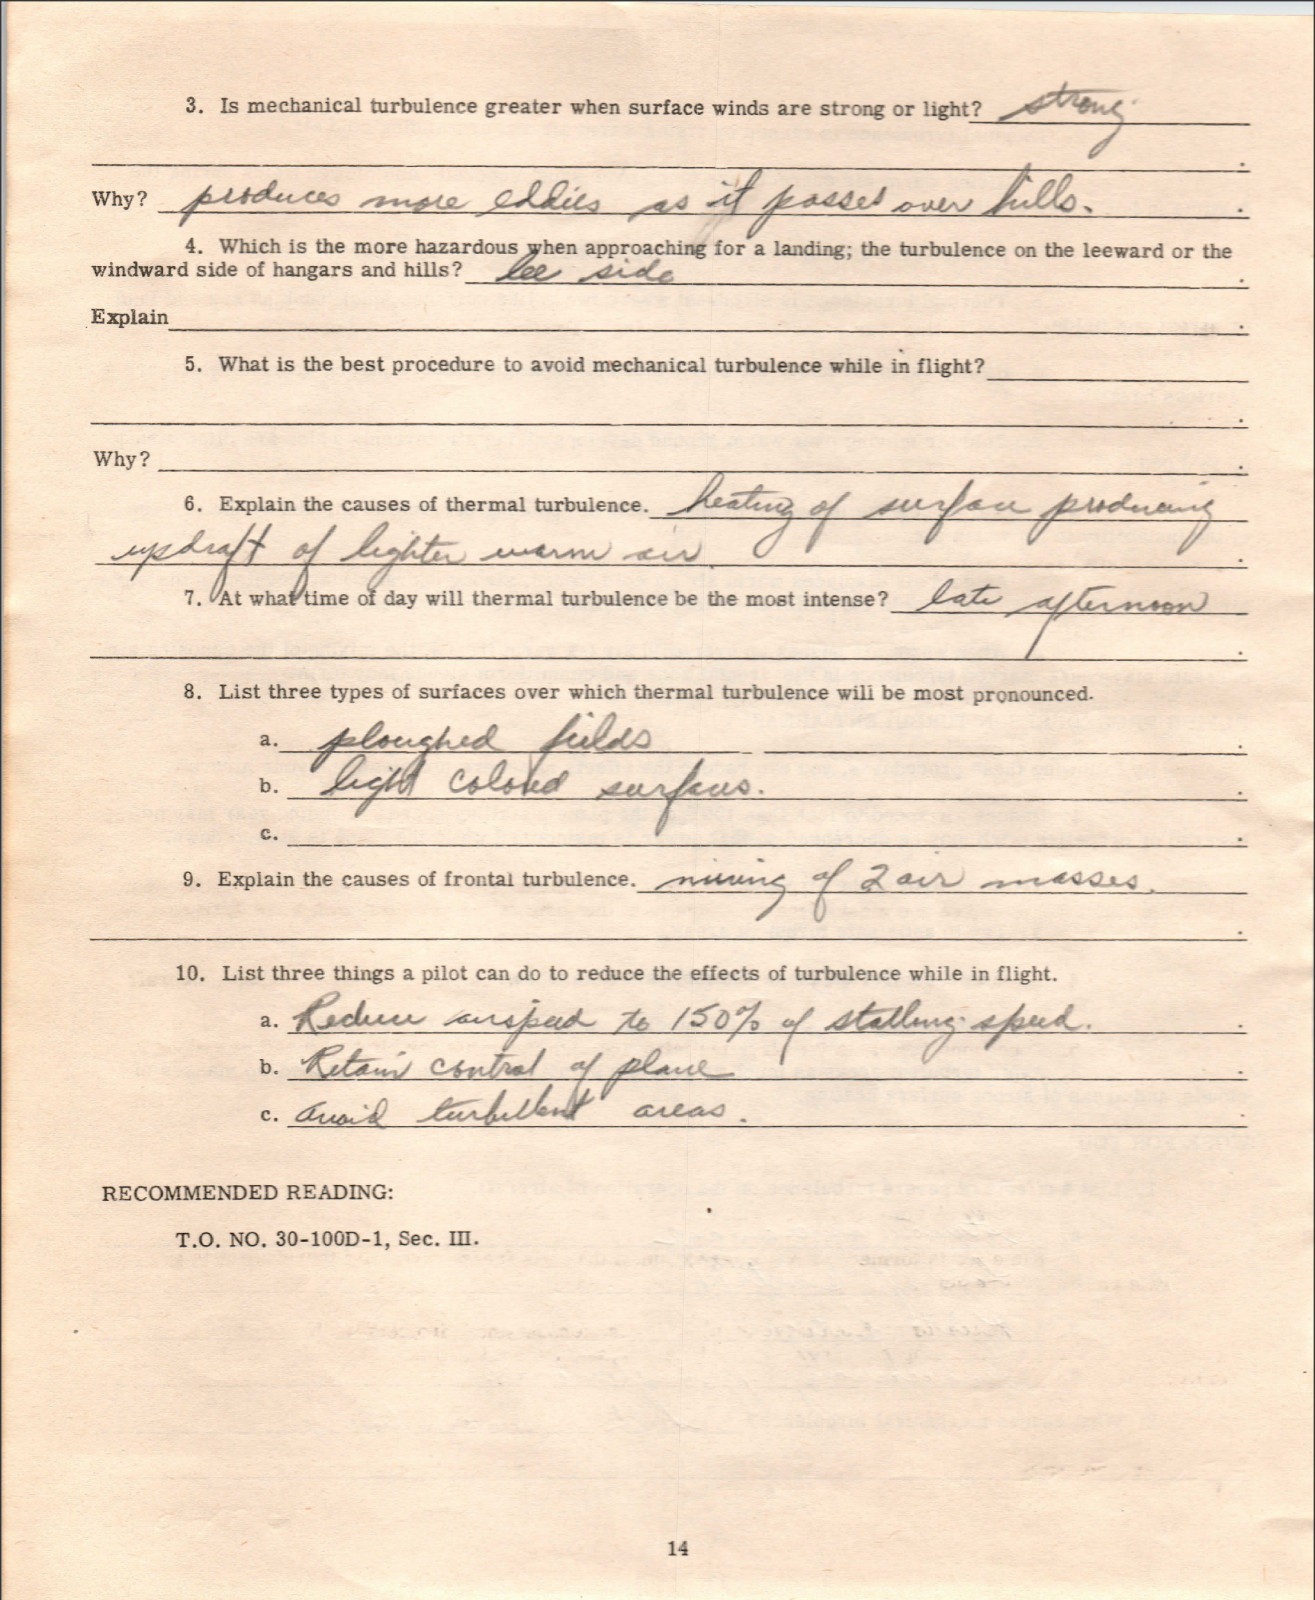 3. Is mechanical turbulence greater when surface winds are strong or light? strong
.
Why? produces more eddies as it passes over hills. .
4. Which is the more hazardous when approaching for a landing; the turbulence on the leeward or the
windward side of hangars and hills? lee side .
Explain .
5. What is the best procedure to avoid mechanical turbulence while in flight?
.
Why? .
6. Explain the causes of thermal turbulence. heating of surface producing
updraft of lighter warm air. .
7. At what time of day will thermal turbulence be the most intense? late afternoon
.
8. List three types of surfaces over which thermal turbulence will be most pronounced.
a. ploughed fields .
b. light colored surfaces. .
c. .
9. Explain the causes of frontal turbulence. mixing of 2 air masses.
.
10. List three things a pilot can do to reduce the effects of turbulence while in flight.
a. Reduce airspeed to 150% of stalling speed. .
b. Retain control of plane .
c. avoid turbulent areas. .
RECOMMENDED READING:
T.O. NO. 30-100D-1, Sec. III.
14